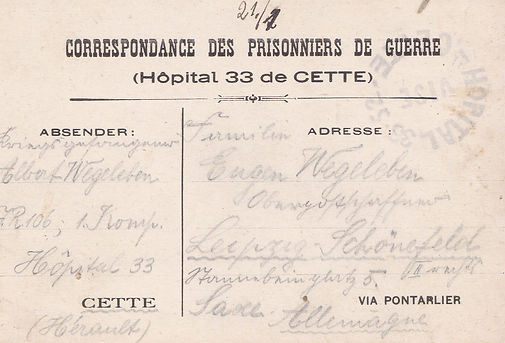 21/1
CORRESPONDANCE DES PRISONNIERS DE GUERRE
(Hôpital 33 de CETTE)
HOPITAL
33
ABSENDER:
Kriegsgefangener
Albert Wegeleben
J.R106, 1. Komp.
Hôpital 33
CETTE
(Hérault)
ADRESSE:
Familie
Eugen Wegeleben
Oberpostschaffner
Leipzig Schönefeld
Stannebeinplatz 5. III rechts
VIA PONTARLIER
Saxe
Allemagne